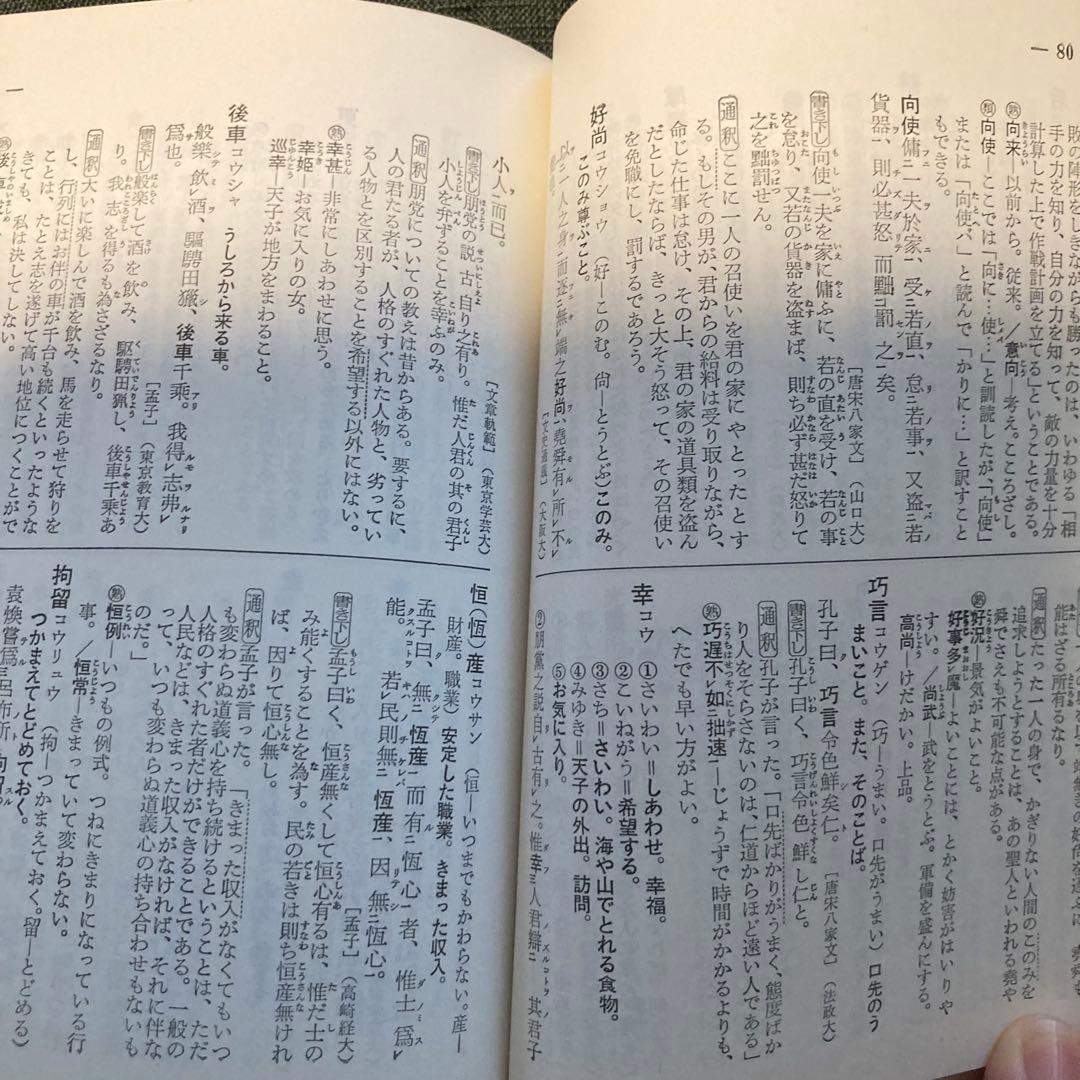 — 80
敗の陣形をしきながらも勝ったのは、いわゆる「相
手の力を知り、自分の力を知って、敵の力量を十分
計算した上で作戦計画を立てる」ということである。
㊙向来—以前から。従来。／意向—考え。こころざし。
向使—ここでは「向に…使」と訓読したが、「向使」
または「向使バ」と読んで「かりに…」と訳すこと
もできる。
向使傭二一夫於家、受二若直、怠二若事、又盗二若
貨器、則必甚怒而黜罰之矣。
［唐宋八家文］（山口大）
書き下し 向使一夫を家に傭ふに、若の直を受け、若の事
を怠り、又若の貨器を盗まば、則ち必ず甚だ怒りて
之を黜罰せん。
通釈 ここに一人の召使いを君の家にやとったとす
る。もしその男が、君からの給料は受け取りながら、
命じた仕事は怠け、その上、君の家の道具類を盗ん
だとしたならば、きっと大そう怒って、その召使い
を免職にし、罰するであろう。
好尚コウショウ（好—このむ。尚—とうとぶ）このみ。
このみ尊ぶこと。
以二一人之身一而逐二無レ端之好尚、堯舜有レ所レ不レ
［文史通義］（大阪大）
能はざる所有るなり。
通釈 たった一人の身で、かぎりない人間のこのみを
追求しようとすることは、あの聖人といわれる堯や
舜でさえも不可能な点がある。
好況—景気がよいこと。
好事多魔—よいことには、とかく妨害がはいりや
すい。／尚武—武をとうとぶ。軍備を盛んにする。
高尚—けだかい。上品。
巧言コウゲン（巧—うまい。口先がうまい）口先のう
まいこと。また、そのことば。
孔子曰、巧言令色鮮矣仁。
［唐宋八家文］（法政大）
書き下し 孔子曰く、巧言令色鮮し仁と。
通釈 孔子が言った。「口先ばかりがうまく、態度ばか
り人をそらさないのは、仁道からほど遠い人である」
巧遅不レ如二拙速一—じょうずで時間がかかるよりも、
へたでも早い方がよい。
幸コウ ①さいわい＝しあわせ。幸福。
②こいねがう＝希望する。
③さち＝さいわい。海や山でとれる食物。
④みゆき＝天子の外出。訪問。
⑤お気に入り。
② 朋黨之説自レ古有レ之。惟幸三人君辯二其君子
小人一而已。
［文章軌範］（東京学芸大）
書き下し 朋党の説古自り之有り。惟だ人君の其の君子
小人を弁ずることを幸ふのみ。
通釈 朋党についての教えは昔からある。要するに、
人の君たる者が、人格のすぐれた人物と、劣ってい
る人物とを区別することを希望する以外にはない。
幸甚—非常にしあわせに思う。
幸姫—お気に入りの女。
巡幸—天子が地方をまわること。
後車コウシャ うしろから来る車。
般樂飲レ酒、驅騁田獵、後車千乘。我得レ志弗レ
爲也。
［孟子］（東京教育大）
書き下し 般楽して酒を飲み、駆騁田猟し、後車千乗あ
り。われ志を得るも為さざるなり。
通釈 大いに楽しんで酒を飲み、馬を走らせて狩りを
し、行列にはお伴の車が千台も続くといったような
ことは、たとえ志を遂げて高い地位につくことがで
きても、私は決してしない。
恒（恆）産コウサン（恒—いつまでもかわらない。産—
財産。職業）安定した職業。きまった収入。
孟子曰、無二恆産一而有二恆心一者、惟士爲レ
能。若民則無二恆産、因無二恆心。
［孟子］（高崎経大）
書き下し 孟子曰く、恒産無くして恒心有るは、惟だ士の
み能くすることを為す。民の若きは則ち恒産無けれ
ば、因りて恒心無し。
通釈 孟子が言った。「きまった収入がなくてもいつ
も変わらぬ道義心を持ち続けるということは、ただ
人格のすぐれた者だけができることである。一般の
人民などは、きまった収入がなければ、それに伴な
って、いつも変わらぬ道義心の持ち合わせもない
のだ。」
恒例—いつもの例式。つねにきまりになっている行
事。／恒常—きまっていて変わらない。
拘留コウリュウ（拘—つかまえておく。留—とどめる）
つかまえてとどめておく。